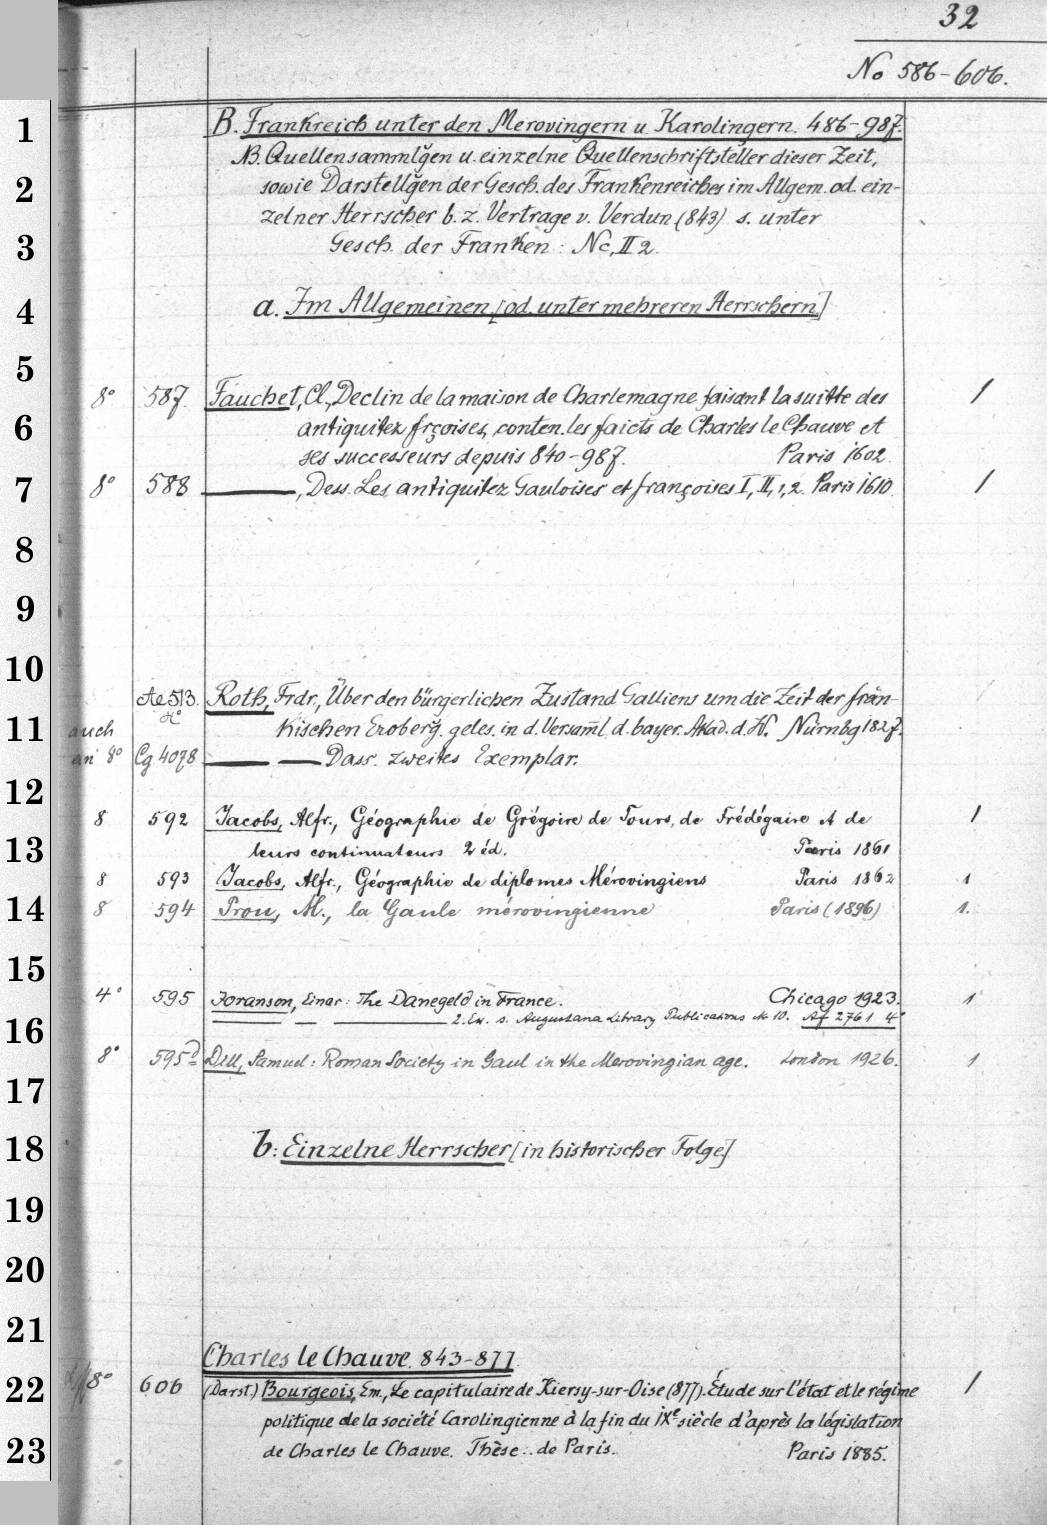 32
No 586-606.
1
B. Frankreich unter den Merovingern u. Karolingern. 486-987.
NB. Quellensammlğen u. einzelne Quellenschriftsteller dieser Zeit,
2
sowie Darstellğen der Gesch. des Frankenreiches im Allgem. od. ein-
zelner Herrscher b. z. Vertrage v. Verdun (843) s. unter
3
Gesch. der Franken: Nc, II 2.
4
a. Im Allgemeinen [od. unter mehreren Herrschern]
5
8° 587. Fauchet, Cl., Declin de la maison de Charlemagne faisant la suitte des 1
6
antiquitez frçoises, conten. les faicts de Charles le Chauve et
ses successeurs depuis 840-987. Paris 1602.
7
8° 588 ——, Dess. Les antiquitez Gauloises et françoises I, II, 1, 2. Paris 1610. 1
8
9
10
Ae 513. Roth, Frdr., Über den bürgerlichen Zustand Galliens um die Zeit der frän-
4°
11
auch kischen Eroberğ. geles. in d. Versam̄l. d. bayer. Akad. d. W. Nürnbg 1827.
an 8° Cg 4078 —— —— Dass. zweites Exemplar.
12
8 592 Jacobs, Alfr., Géographie de Grégoire de Tours, de Frédégaire et de 1
13
leurs continuateurs 2 éd. Paris 1861
8 593 Jacobs, Alfr., Géographie de diplomes Mérovingiens Paris 1862 1
14
8 594 Prou, M., la Gaule mérovingienne Paris (1896) 1.
15
4° 595 Joranson, Einar: The Danegeld in France. Chicago 1923. 1
16
—— — —— 2. Ex. s. Augustana Library Publications No 10. Af 2761 4°
8° 595a Dill, Samuel: Roman Society in Gaul in the Merovingian age. London 1926. 1
17
18
b: Einzelne Herrscher [in historischer Folge]
19
20
21
Charles le Chauve. 843-877
22
8° 606 (Darst.) Bourgeois, Em., Le capitulaire de Kiersy-sur-Oise (877). Étude sur l'état et le régime 1
politique de la société Carolingienne à la fin du IXe siècle d'après la législation
23
de Charles le Chauve. Thèse .. de Paris. Paris 1885.